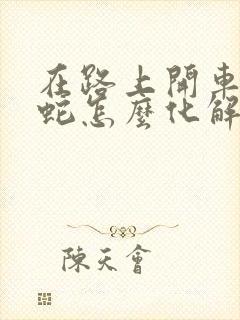 在路上開車
蛇怎麼化解
陳天會